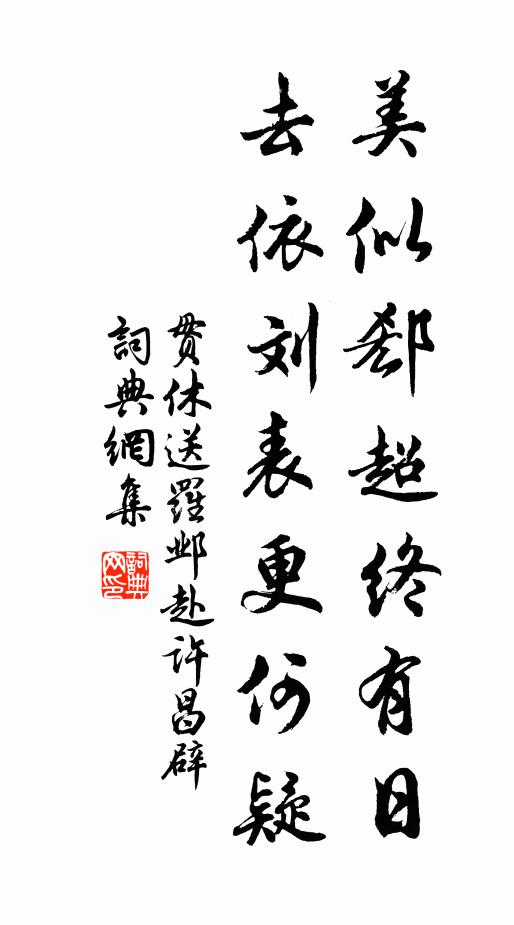 美似郄超终有日
去依刘表更何疑
贯休送羅邺赴许昌辟
詞典網集
詞典
网印